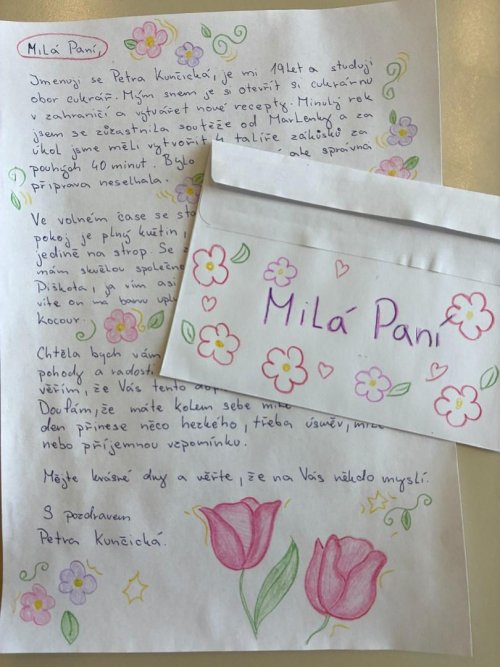 Milá Paní,
Jmenuji se Petra Kunčická, je mi 19 let a studuji
obor cukrář. Mým snem je si otevřít si cukrárnu
v zahraničí a vytvářet nové recepty. Minulý rok
jsem se zúčastnila soutěže od Marlenky a za
úkol jsme měli vytvořit 4 talíře zákusků za
pouhých 40 minut. Bylo ale správná
příprava neselhala.
Ve volném čase se
pokoj je plný květin,
jedině na strop. Se
mám skvělou
Piškota, já vím asi
víte on má barvu
kocour.
Chtěla bych vám
pohody a radosti
věřím, že Vás tento
Doufám, že máte kolem sebe
den přinese něco hezkého, třeba úsměv,
nebo příjemnou vzpomínku.
Mějte krásné dny a věřte, že na Vás někdo myslí.
S pozdravem
Petra Kunčická.
Milá Paní